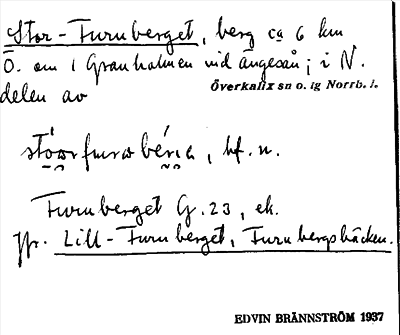 Stor-Furuberget, berg ca 6 km
Ö. om 1 Granholmen vid Ängesån; i N.
delen av
Överkalix sn o. tg Norrb. l.
bf. n.
Furuberget G. 23, ek.
Jfr. Lill-Furuberget, Furubergsbäcken.
EDVIN BRÄNNSTRÖM 1937